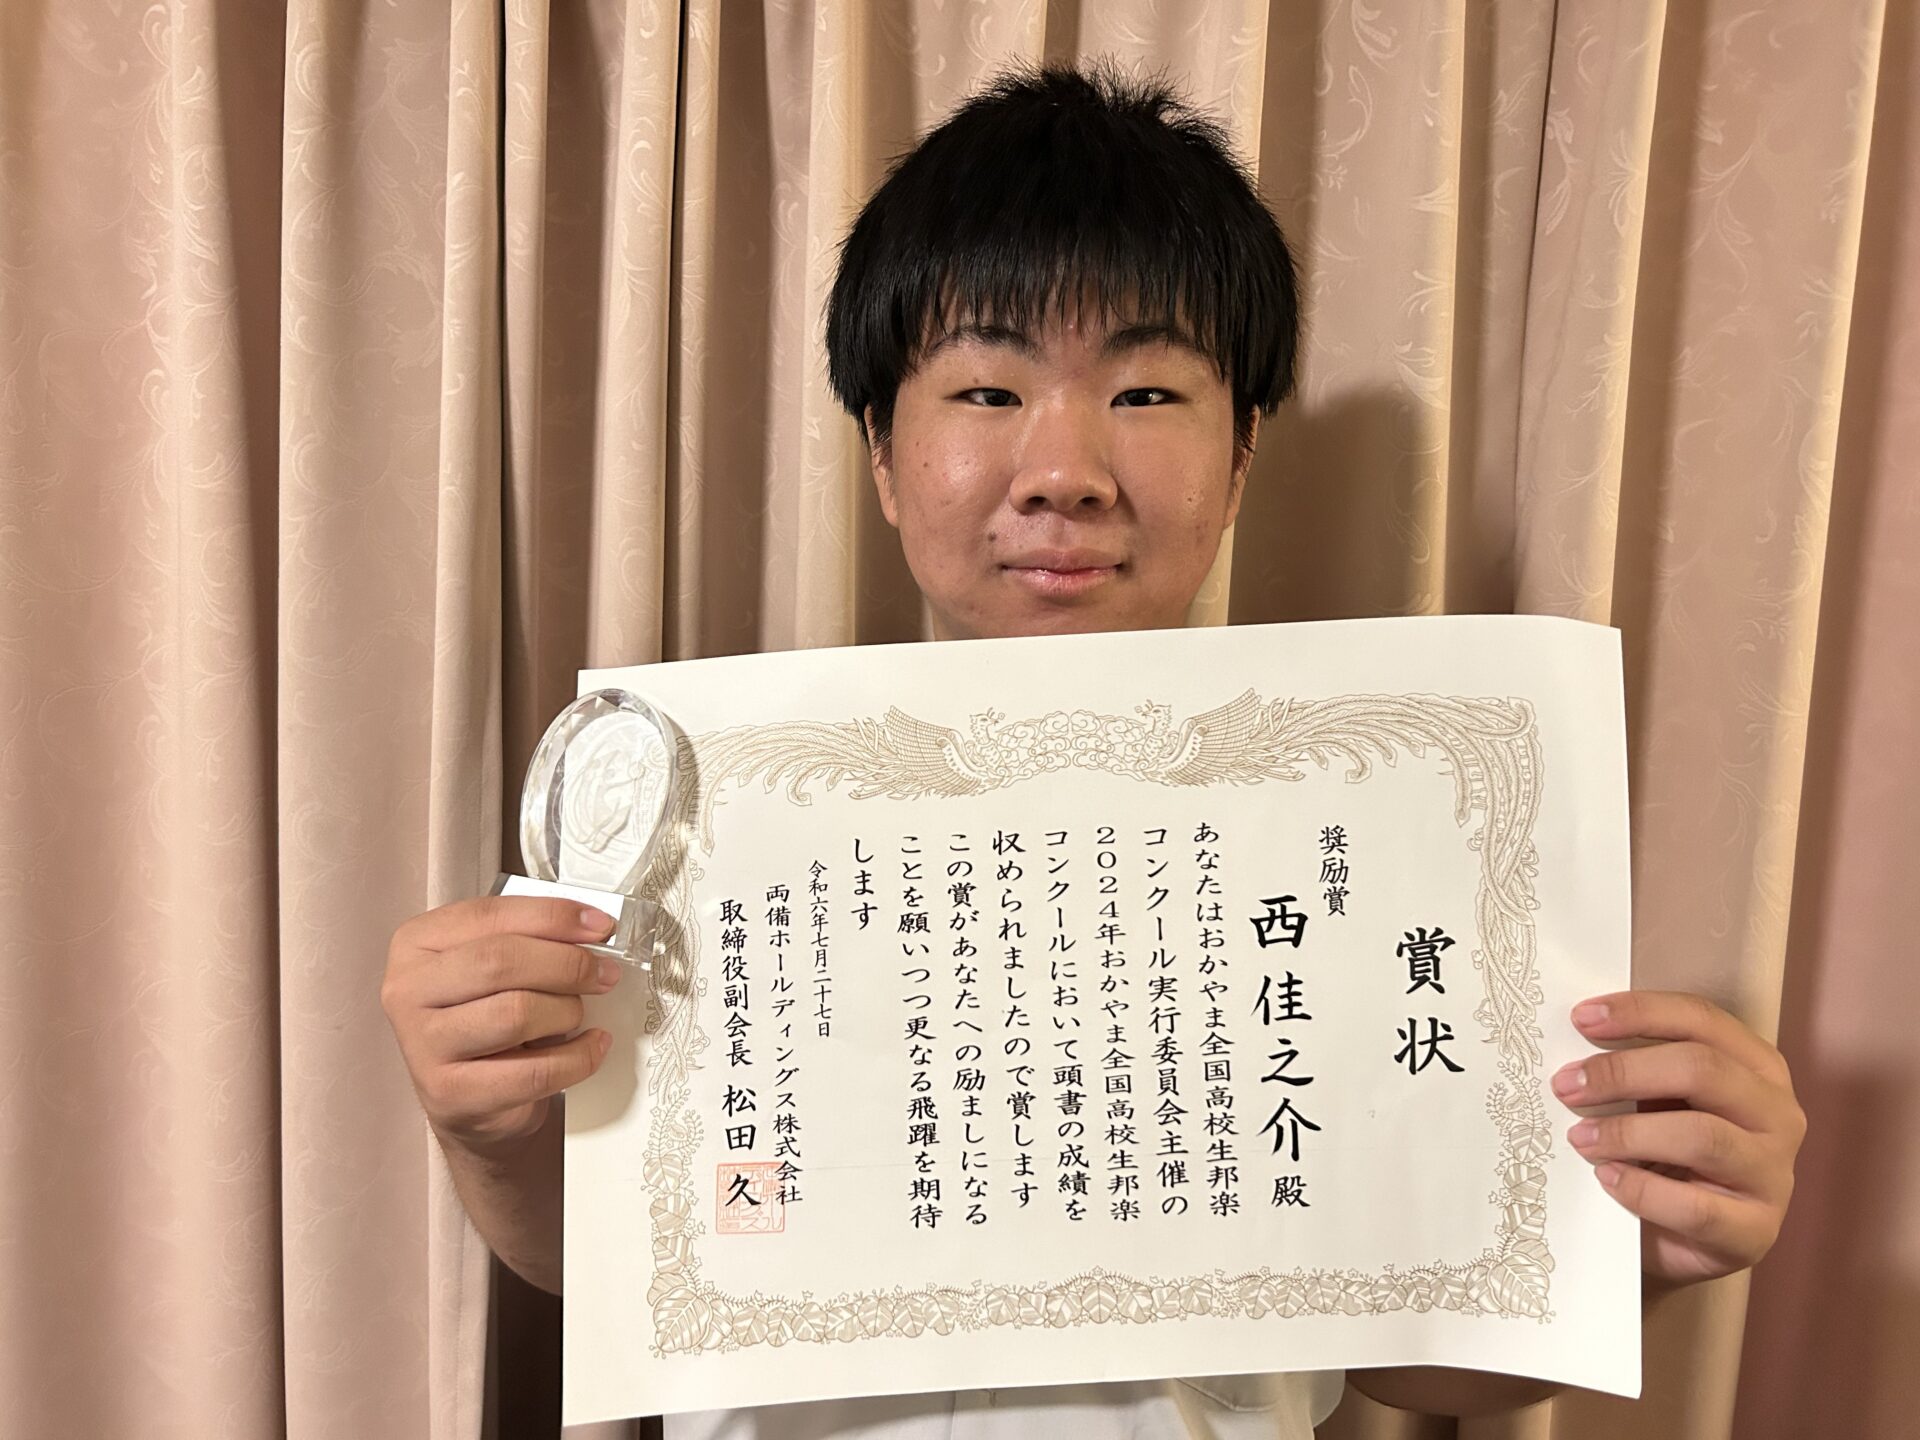 賞状
奨励賞
西佳之介殿
あなたはおかやま全国高校生邦楽
コンクール実行委員会主催の
2024年おかやま全国高校生邦楽
コンクールにおいて頭書の成績を
収められましたので賞します
この賞があなたへの励ましになる
ことを願いつつ更なる飛躍を期待
します
令和六年七月二十七日
両備ホールディングス株式会社
取締役副会長 松田久